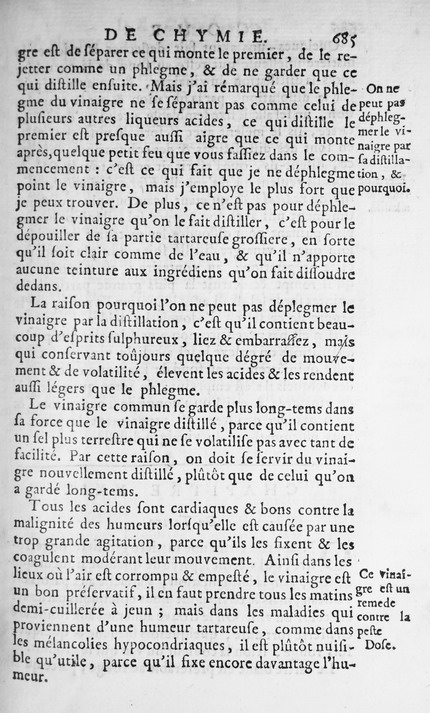 DE CHYMIE. 685
gre est de séparer ce qui monte le premier, de le re-
jetter comme un phlegme, & de ne garder que ce
qui distille ensuite. Mais j'ai rémarqué que le phle-
gme du vinaigre ne se séparant pas comme celui de
plusieurs autres liqueurs acides, ce qui distille le
premier est presque aussi aigre que ce qui monte
après, quelque petit feu que vous fassiez dans le com-
mencement : c'est ce qui fait que je ne déphlegme
point le vinaigre, mais j'employe le plus fort que
je peux trouver. De plus, ce n'est pas pour déphle-
gmer le vinaigre qu'on le fait distiller, c'est pour le
dépouiller de sa partie tartareuse grossiere, en sorte
qu'il soit clair comme de l'eau, & qu'il n'apporte
aucune teinture aux ingrédiens qu'on fait dissoudre
dedans.
On ne
peut pas
déphleg-
mer le vi-
naigre par
sa distilla-
tion, &
pourquoi.
La raison pourquoi l'on ne peut pas déplegmer le
vinaigre par la distillation, c'est qu'il contient beau-
coup d'esprits sulphureux, liez & embarrassez, mais
qui conservant toûjours quelque dégré de mouve-
ment & de volatilité, élevent les acides & les rendent
aussi légers que le phlegme.
Le vinaigre commun se garde plus long-tems dans
sa force que le vinaigre distillé, parce qu'il contient
un sel plus terrestre qui ne se volatilise pas avec tant de
facilité. Par cette raison, on doit se servir du vinai-
gre nouvellement distillé, plûtôt que de celui qu'on
a gardé long-tems.
Tous les acides sont cardiaques & bons contre la
malignité des humeurs lorsqu'elle est causée par une
trop grande agitation, parce qu'ils les fixent & les
coagulent modérant leur mouvement. Ainsi dans les
lieux où l'air est corrompu & empesté, le vinaigre est
un bon préservatif, il en faut prendre tous les matins
demi-cuillerée à jeun ; mais dans les maladies qui
proviennent d'une humeur tartareuse, comme dans
les mélancolies hypocondriaques, il est plûtôt nuisi-
ble qu'utile, parce qu'il fixe encore davantage l'hu-
meur.
Ce vinai-
gre est un
remede
contre la
peste
Dose.